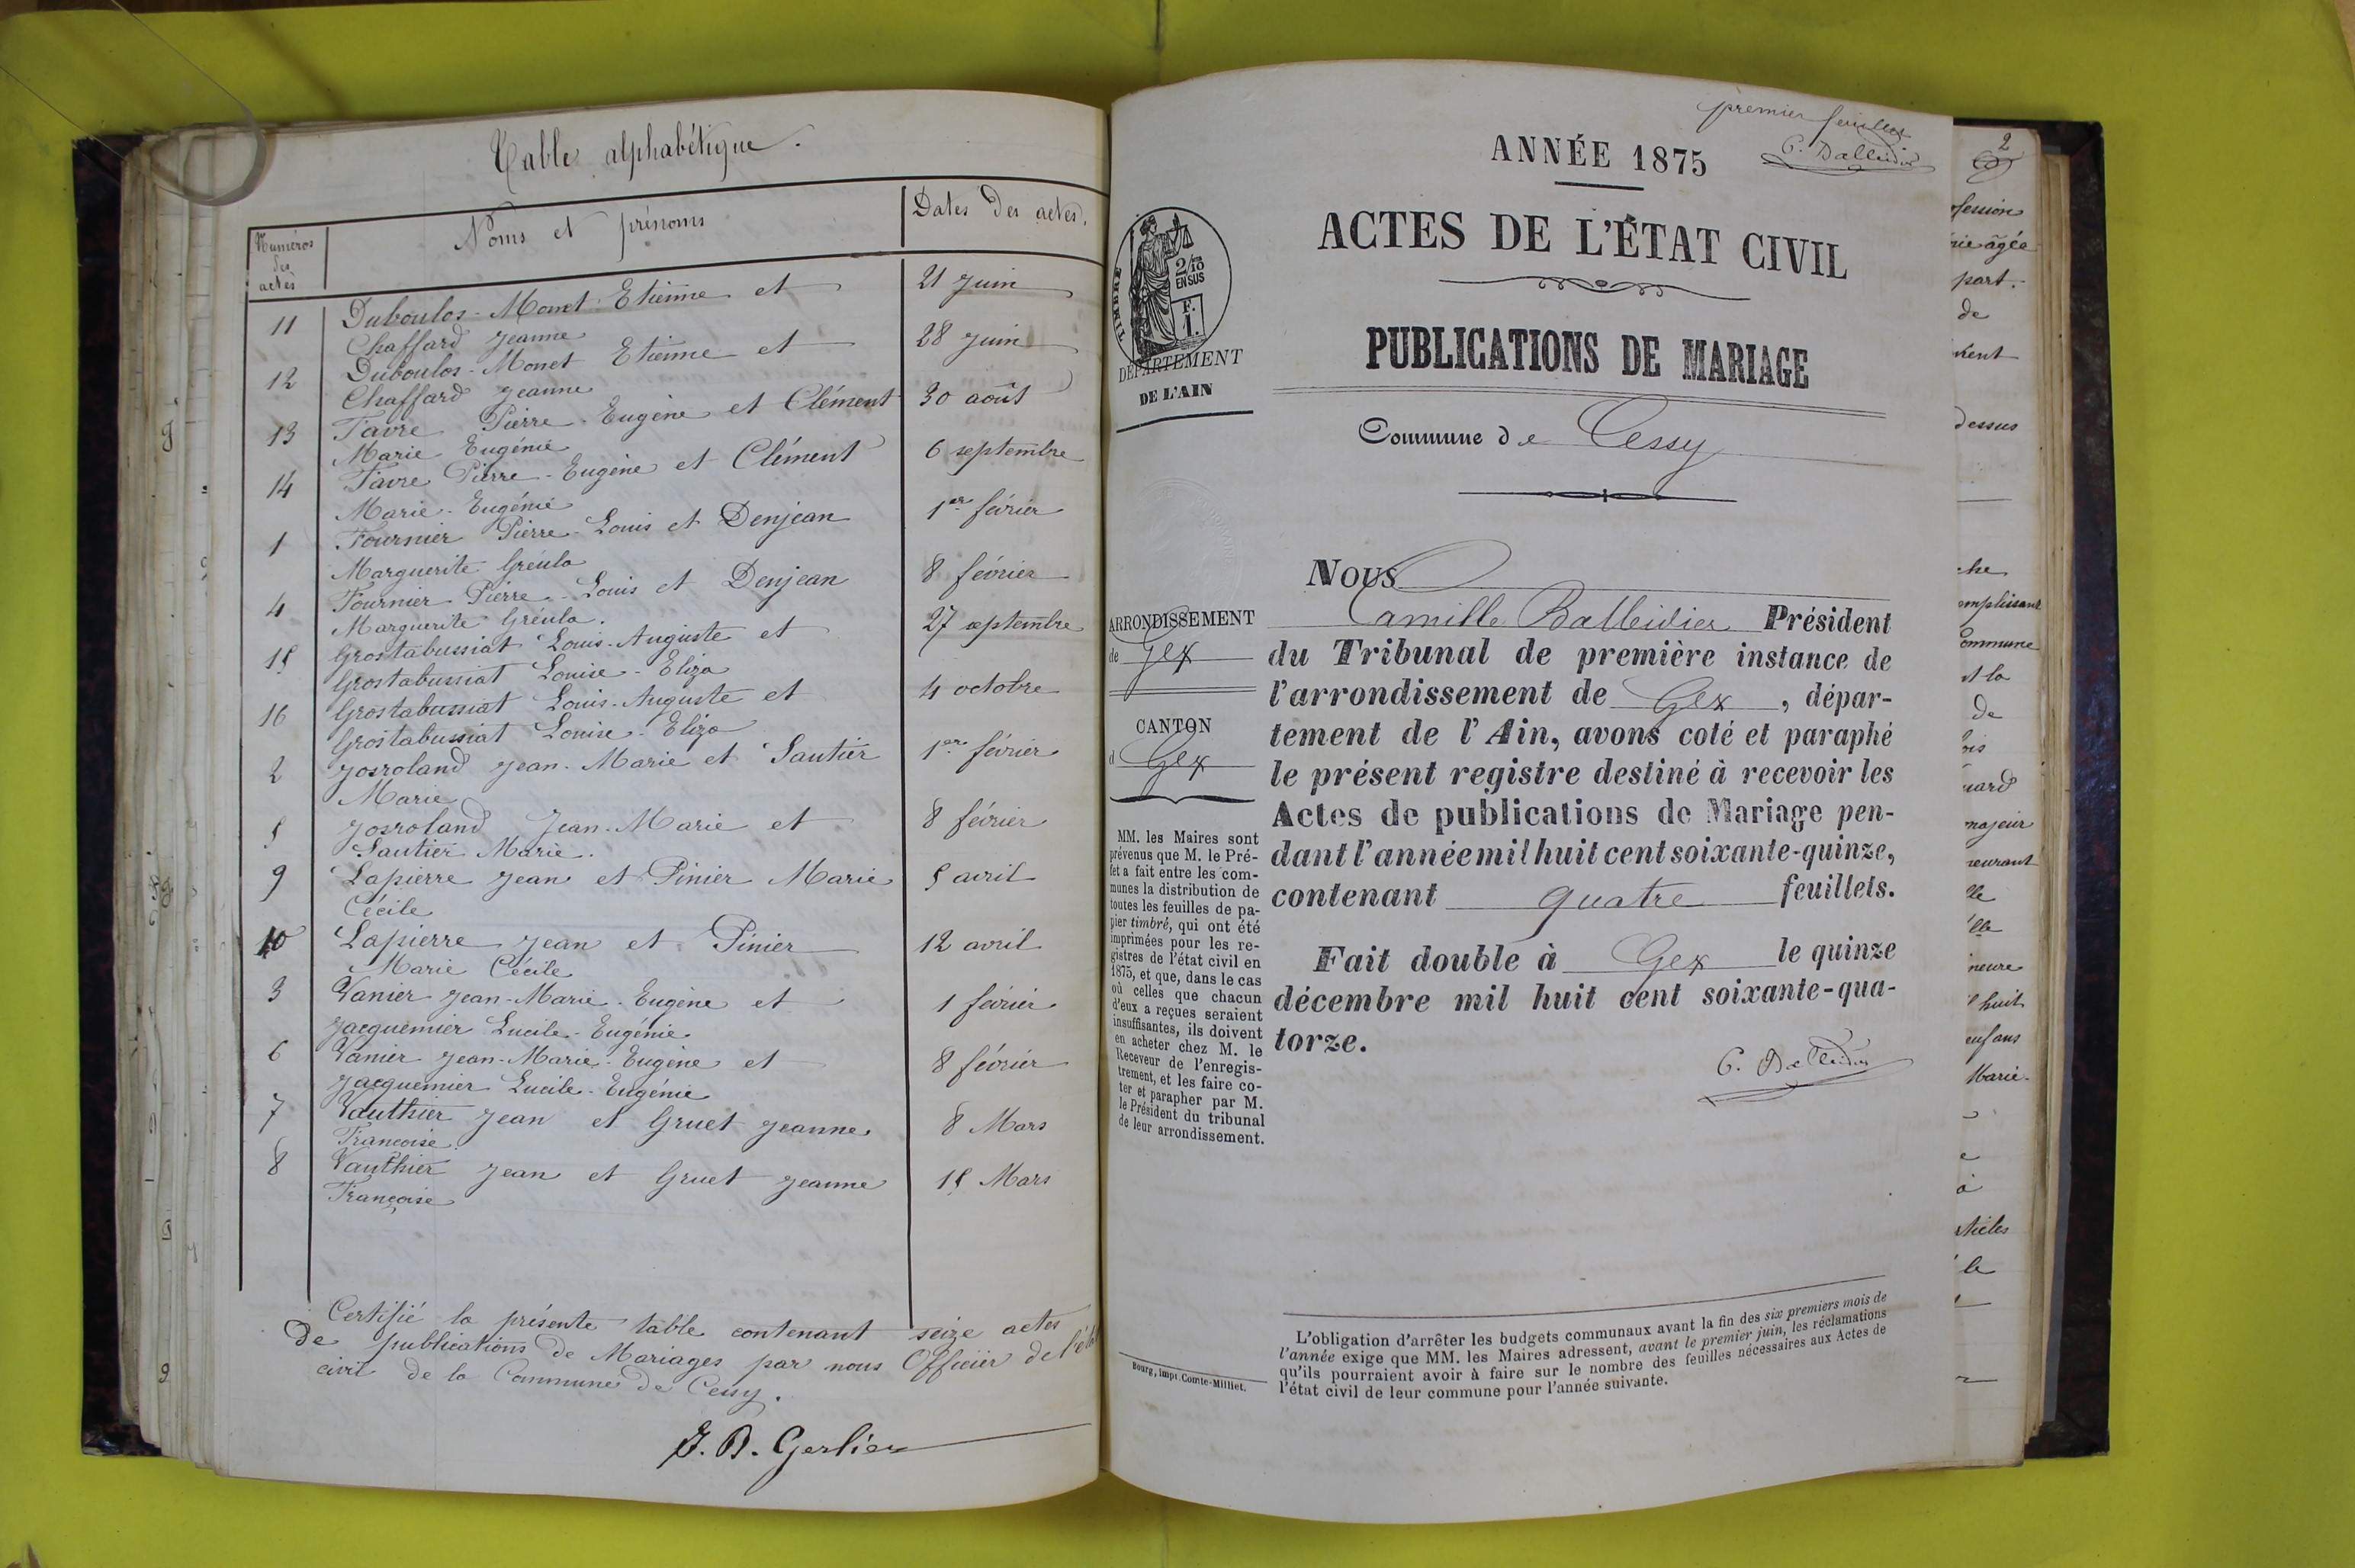 Table alphabétique.
Numéros des actes
Noms et prénoms
Dates des actes.
11 Duboulos-Monet Etienne et 21 Juin
Chaffard Jeanne
12 Duboulos-Monet Etienne et 28 Juin
Chaffard Jeanne
13 Favre Pierre-Eugène et Clément 30 août
Marie Eugénie
14 Favre Pierre-Eugène et Clément 6 septembre
Marie-Eugénie
1 Fournier Pierre-Louis et Denjean 1er février
Marguerite Gréula
4 Fournier Pierre-Louis et Denjean 8 février
Marguerite Gréula.
15 Grostabussiat Louis-Auguste et 27 septembre
Grostabussiat Louise-Eliza
16 Grostabussiat Louis-Auguste et 4 octobre
Grostabussiat Louise-Eliza
2 Josroland Jean-Marie et Sautier 1er février
Marie
5 Josroland Jean-Marie et 8 février
Sautier Marie.
9 Lapierre Jean et Pinier Marie 5 avril
Cécile
10 Lapierre Jean et Pinier 12 avril
Marie Cécile
3 Vanier Jean-Marie-Eugène et 1 février
Jacquemier Lucile-Eugénie
6 Vanier Jean-Marie-Eugène et 8 février
Jacquemier Lucile-Eugénie
7 Vauthier Jean et Gruet Jeanne 8 Mars
Françoise
8 Vauthier Jean et Gruet Jeanne 15 Mars
Françoise
Certifié la présente table contenant seize actes
de publications de Mariages par nous Officier de l'état
civil de la Commune de Cessy.
J. B. Gerlier
premier feuillet
C. Balleidier
ANNÉE 1875
ACTES DE L'ÉTAT CIVIL
TIMBRE
2/10
EN SUS
F.
1.
DÉPARTEMENT
DE L'AIN
PUBLICATIONS DE MARIAGE
Commune de Cessy
ARRONDISSEMENT
de Gex
CANTON
d Gex
MM. les Maires sont
prévenus que M. le Pré-
fet a fait entre les com-
munes la distribution de
toutes les feuilles de pa-
pier timbré, qui ont été
imprimées pour les re-
gistres de l'état civil en
1875, et que, dans le cas
où celles que chacun
d'eux a reçues seraient
insuffisantes, ils doivent
en acheter chez M. le
Receveur de l'enregis-
trement, et les faire co-
ter et parapher par M.
le Président du tribunal
de leur arrondissement.
Nous
Camille Balleidier Président
du Tribunal de première instance de
l'arrondissement de Gex, dépar-
tement de l'Ain, avons coté et paraphé
le présent registre destiné à recevoir les
Actes de publications de Mariage pen-
dant l'année mil huit cent soixante-quinze,
contenant quatre feuillets.
Fait double à Gex le quinze
décembre mil huit cent soixante-qua-
torze.
C. Balleidier
L'obligation d'arrêter les budgets communaux avant la fin des six premiers mois de
l'année exige que MM. les Maires adressent, avant le premier juin, les réclamations
qu'ils pourraient avoir à faire sur le nombre des feuilles nécessaires aux Actes de
l'état civil de leur commune pour l'année suivante.
Bourg, impr. Comte-Milliet.
2
part.
de
dessus
Commune
et la
de
majeur
huit
Marie-
à
le